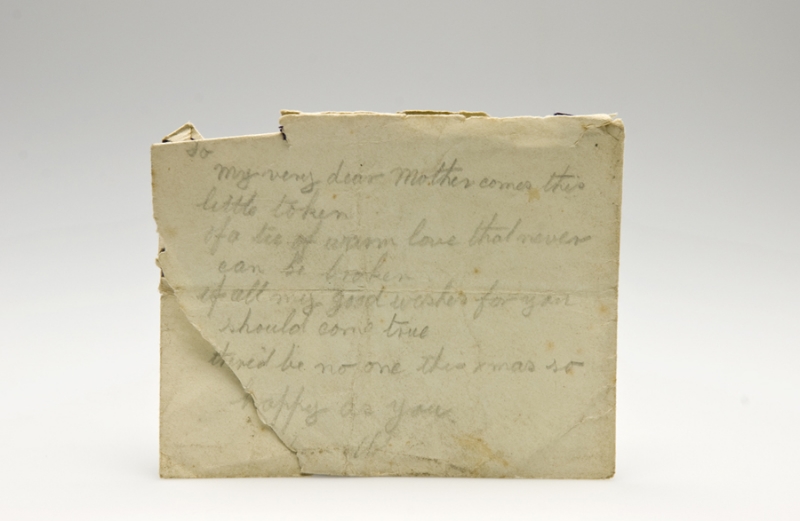 so
my very dear Mother comes this
little token
of a tie of warm love that never
can be broken
if all my good wishes for you
should come true
there'd be no one this xmas so
happy as you